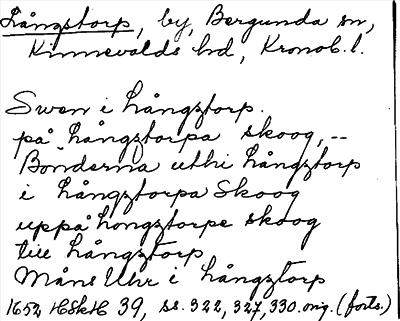 Långstorp, by, Bergunda sn,
Kinnevalds hd, Kronob. l.
Swen i Långztorp.
på Långztorpa skoog, --
Bönderna uthi Långztorp
i Långztorpa Skoog
uppå Longztorpe skoog
till Långztorp
Måns Uhr i Långztorp
1652 HSkH 39, ss. 322, 327, 330. orig. (forts.)